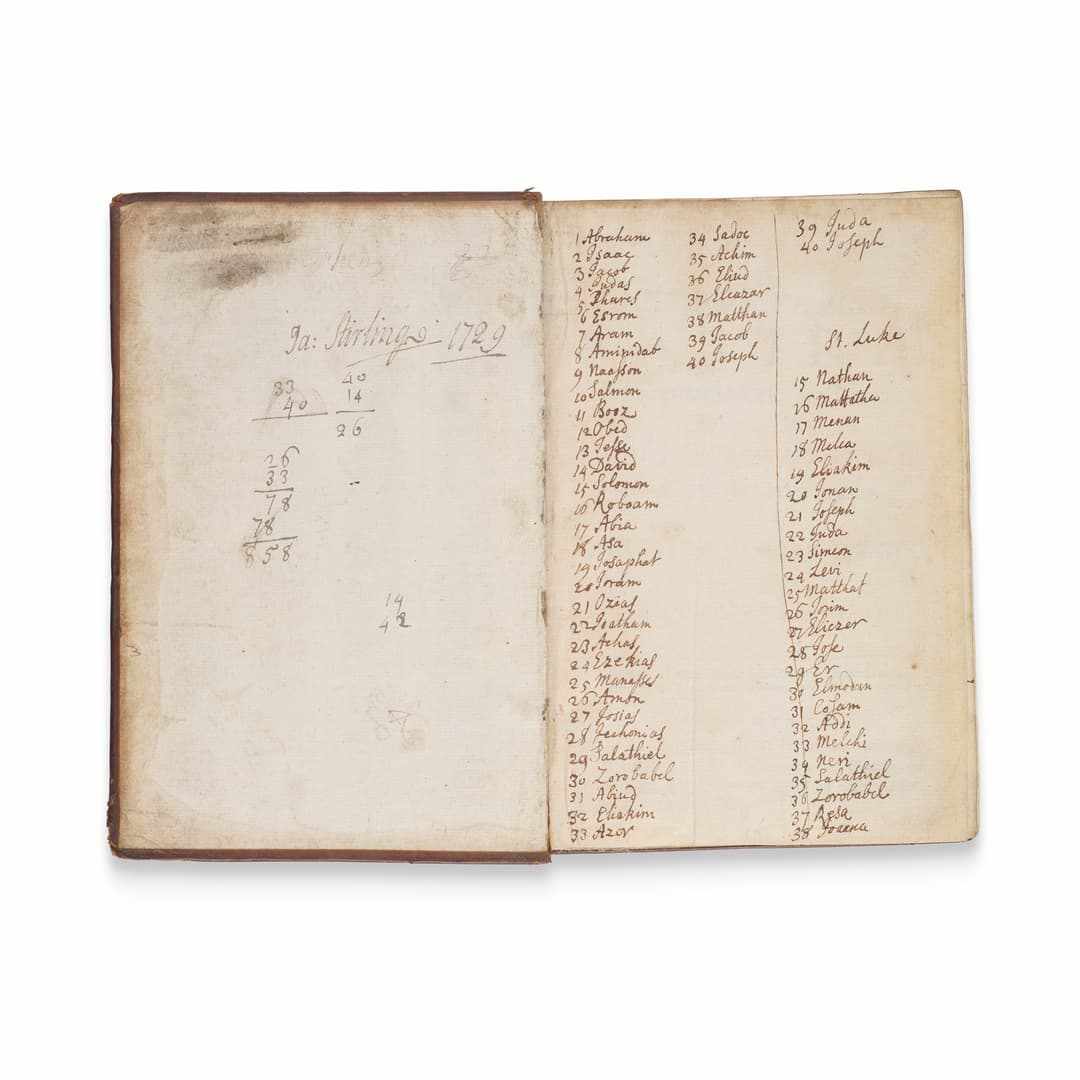 Ja: Stirling 1729
33
40
40
14
26
26
33
78
78
858
14
42
1 Abraham
2 Isaac
3 Jacob
4 Judas
5 Phares
6 Esrom
7 Aram
8 Aminidab
9 Naasson
10 Salmon
11 Booz
12 Obed
13 Jesse
14 David
15 Solomon
16 Roboam
17 Abia
18 Asa
19 Josaphat
20 Joram
21 Ozias
22 Joatham
23 Achas
24 Ezekias
25 Manasses
26 Amon
27 Josias
28 Jechonias
29 Salathiel
30 Zorobabel
31 Abiud
32 Eliakim
33 Azor
34 Sadoc
35 Achim
36 Eliud
37 Eleazar
38 Matthan
39 Jacob
40 Joseph
39 Juda
40 Joseph
St. Luke
15 Nathan
16 Mattatha
17 Menan
18 Melea
19 Eliakim
20 Jonan
21 Joseph
22 Juda
23 Simeon
24 Levi
25 Matthat
26 Jorim
27 Eliezer
28 Jose
29 Er
30 Elmodan
31 Cosam
32 Addi
33 Melchi
34 Neri
35 Salathiel
36 Zorobabel
37 Resa
38 Joanna